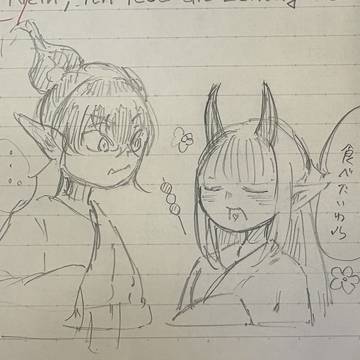 Nein, ich lese die Zeitung
食べたいわ